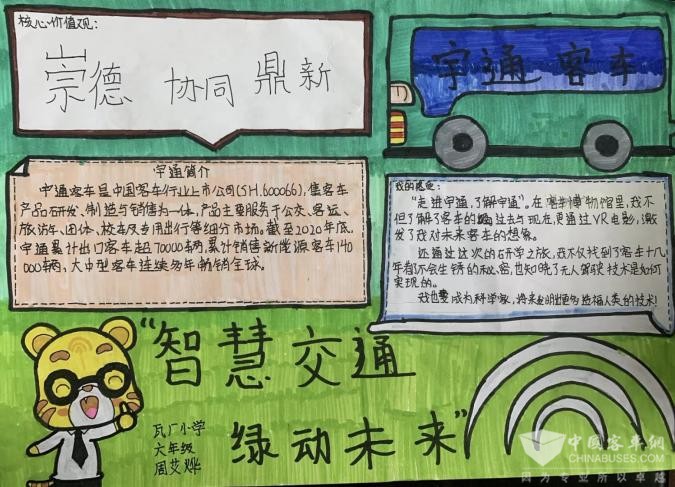 核心价值观：
崇德 协同 鼎新
宇通客车
宇通简介
宇通客车是中国客车行业上市公司(SH.600066),集客车
产品研发、制造与销售为一体,产品主要服务于公交、客运、
旅游、团体、校车及专用出行等细分市场。截至2020年底,
宇通累计出口客车超70000辆,累计销售新能源客车140
000辆,大中型客车连续多年畅销全球。
我的感想：
“走进宇通,了解宇通”。在客车博物馆里,我不
但了解了客车的过去与现在,更通过VR电影,激
发了我对未来客车的想象。
还通过这次的研学之旅,我不仅找到了客车十几
年都不会生锈的秘密,也知晓了无人驾驶技术是如何
实现的。
我也要成为科学家,将来发明出更多造福人类的技术!
“智慧交通
绿动未来”
瓦厂小学
六年级
周艾烨
中国客车网
CHINABUSES.COM
因为专业所以卓越